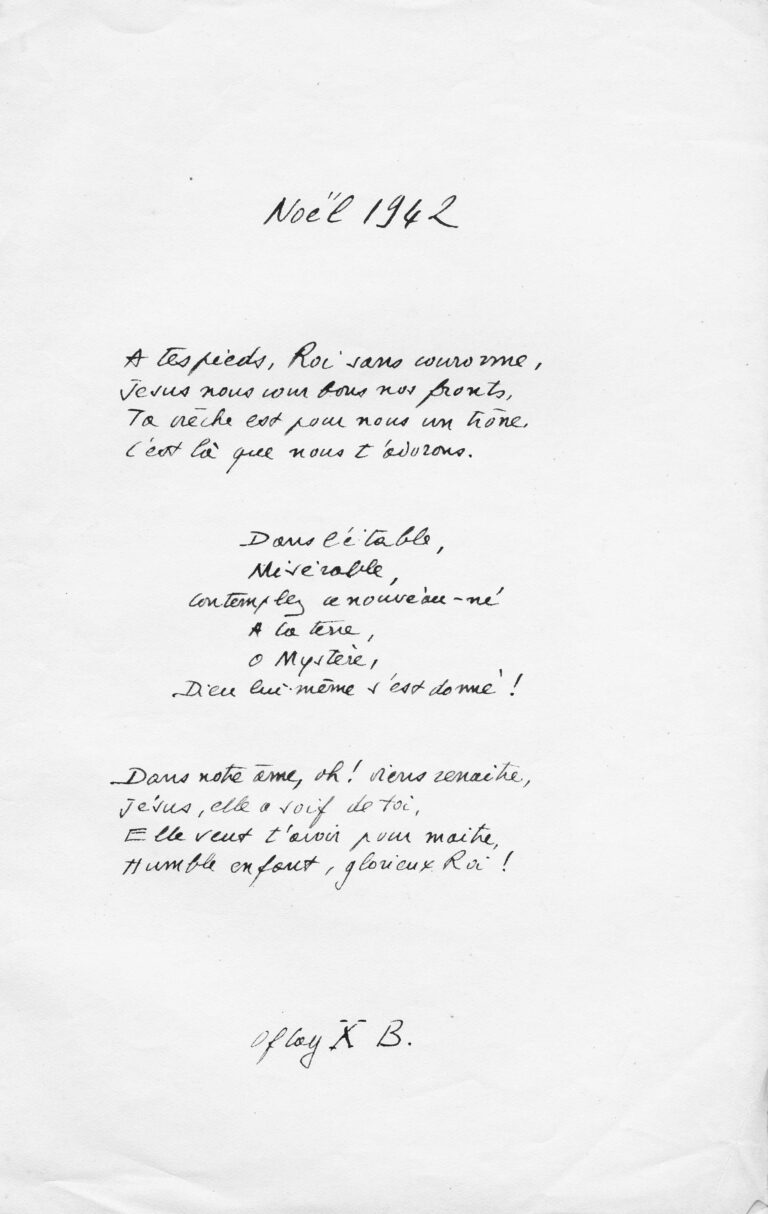 Noël 1942
A tes pieds, Roi sans couronne,
Jésus nous courbons nos fronts,
Ta crêche est pour nous un trône,
C'est là que nous t'adorons.
Dans l'étable,
Misérable,
Contemplez ce nouveau-né
A la terre,
O Mystère,
Dieu lui-même s'est donné !
Dans notre âme, oh ! viens renaitre,
Jésus, elle a soif de toi,
Elle veut t'avoir pour maitre,
Humble enfant, glorieux Roi !
Oflag X B.